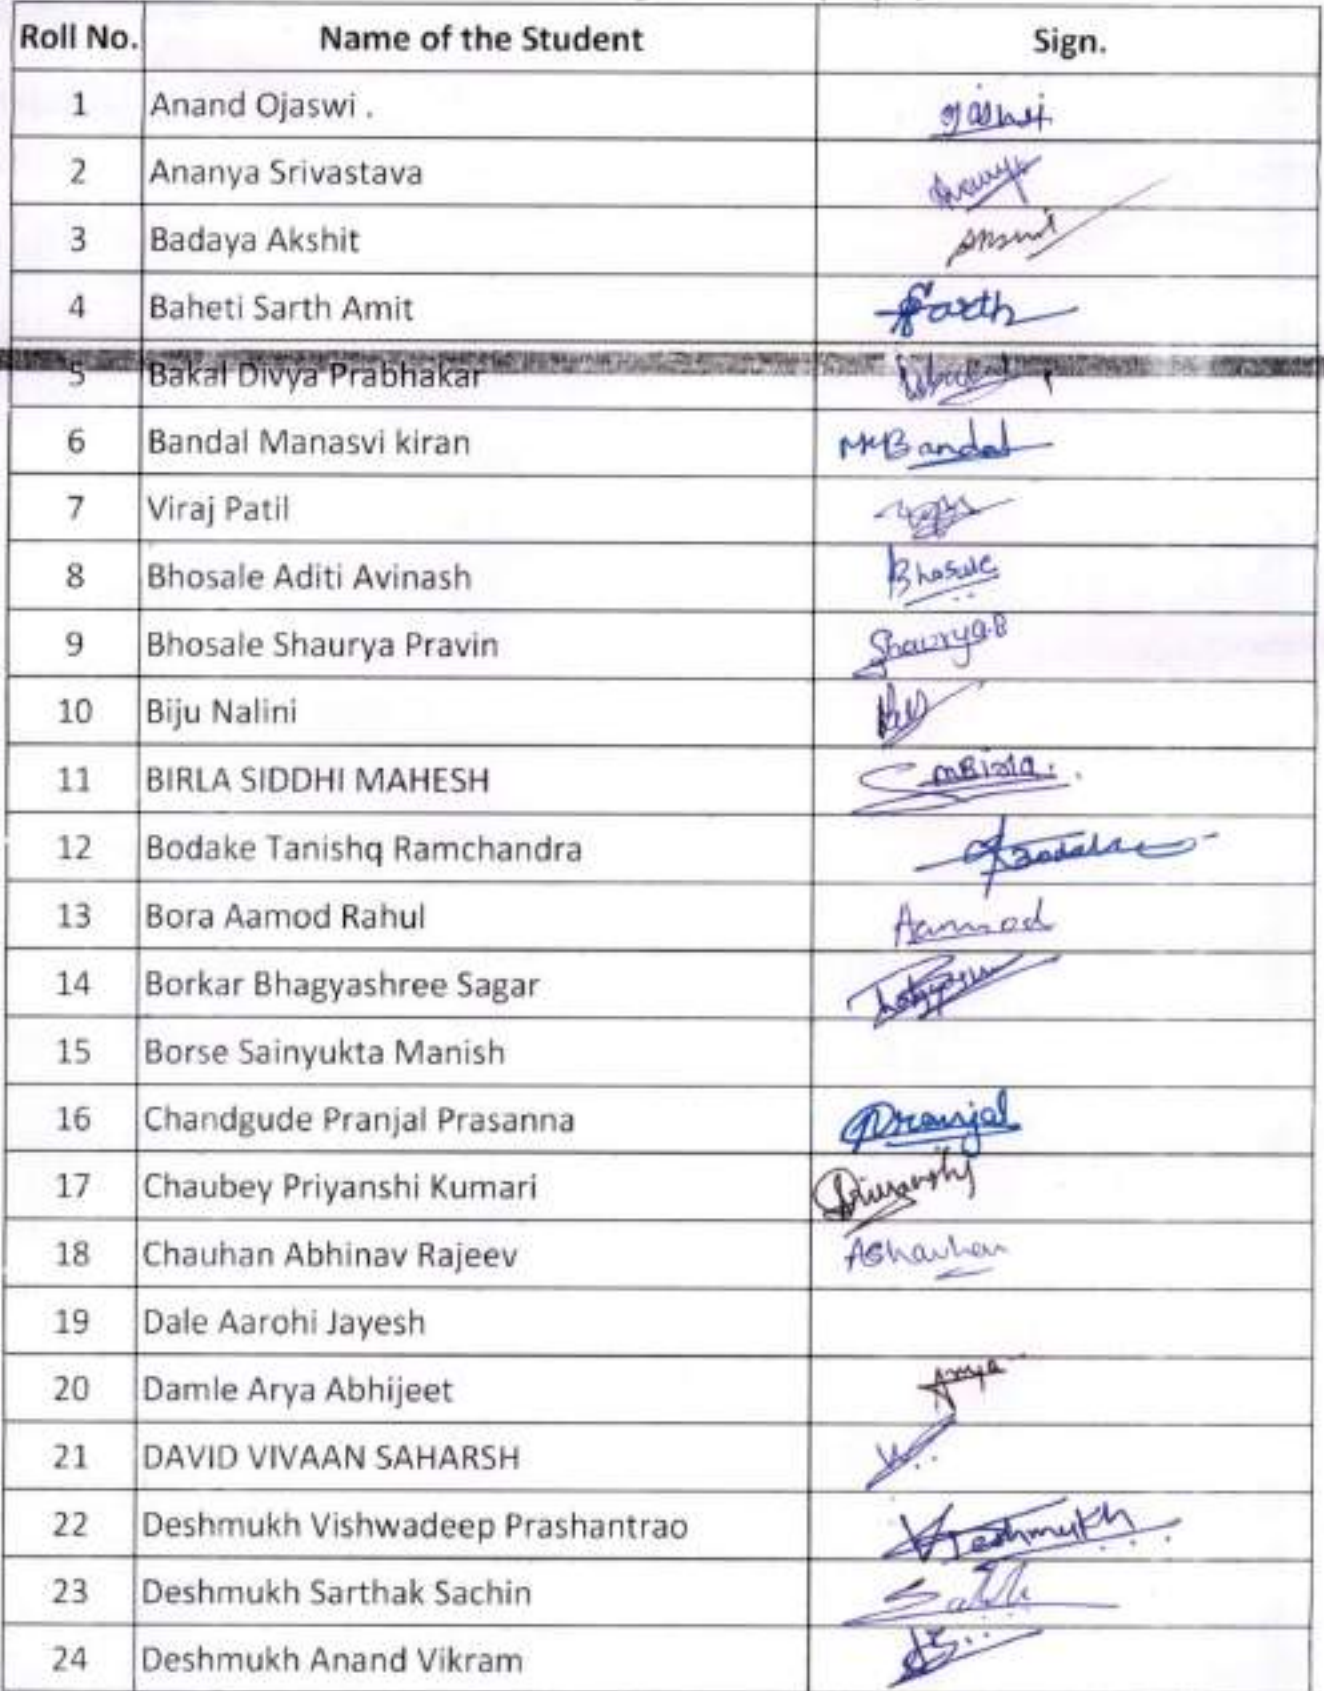 Roll No. Name of the Student Sign.
1 Anand Ojaswi .
2 Ananya Srivastava
3 Badaya Akshit
4 Baheti Sarth Amit Sarth
5 Bakal Divya Prabhakar
6 Bandal Manasvi kiran MKBandal
7 Viraj Patil
8 Bhosale Aditi Avinash Bhosale
9 Bhosale Shaurya Pravin Shaurya.B
10 Biju Nalini
11 BIRLA SIDDHI MAHESH SMBirla.
12 Bodake Tanishq Ramchandra
13 Bora Aamod Rahul Aamod
14 Borkar Bhagyashree Sagar
15 Borse Sainyukta Manish
16 Chandgude Pranjal Prasanna Pranjal
17 Chaubey Priyanshi Kumari Priyanshi
18 Chauhan Abhinav Rajeev AChauhan
19 Dale Aarohi Jayesh
20 Damle Arya Abhijeet Arya
21 DAVID VIVAAN SAHARSH
22 Deshmukh Vishwadeep Prashantrao VDeshmukh
23 Deshmukh Sarthak Sachin
24 Deshmukh Anand Vikram